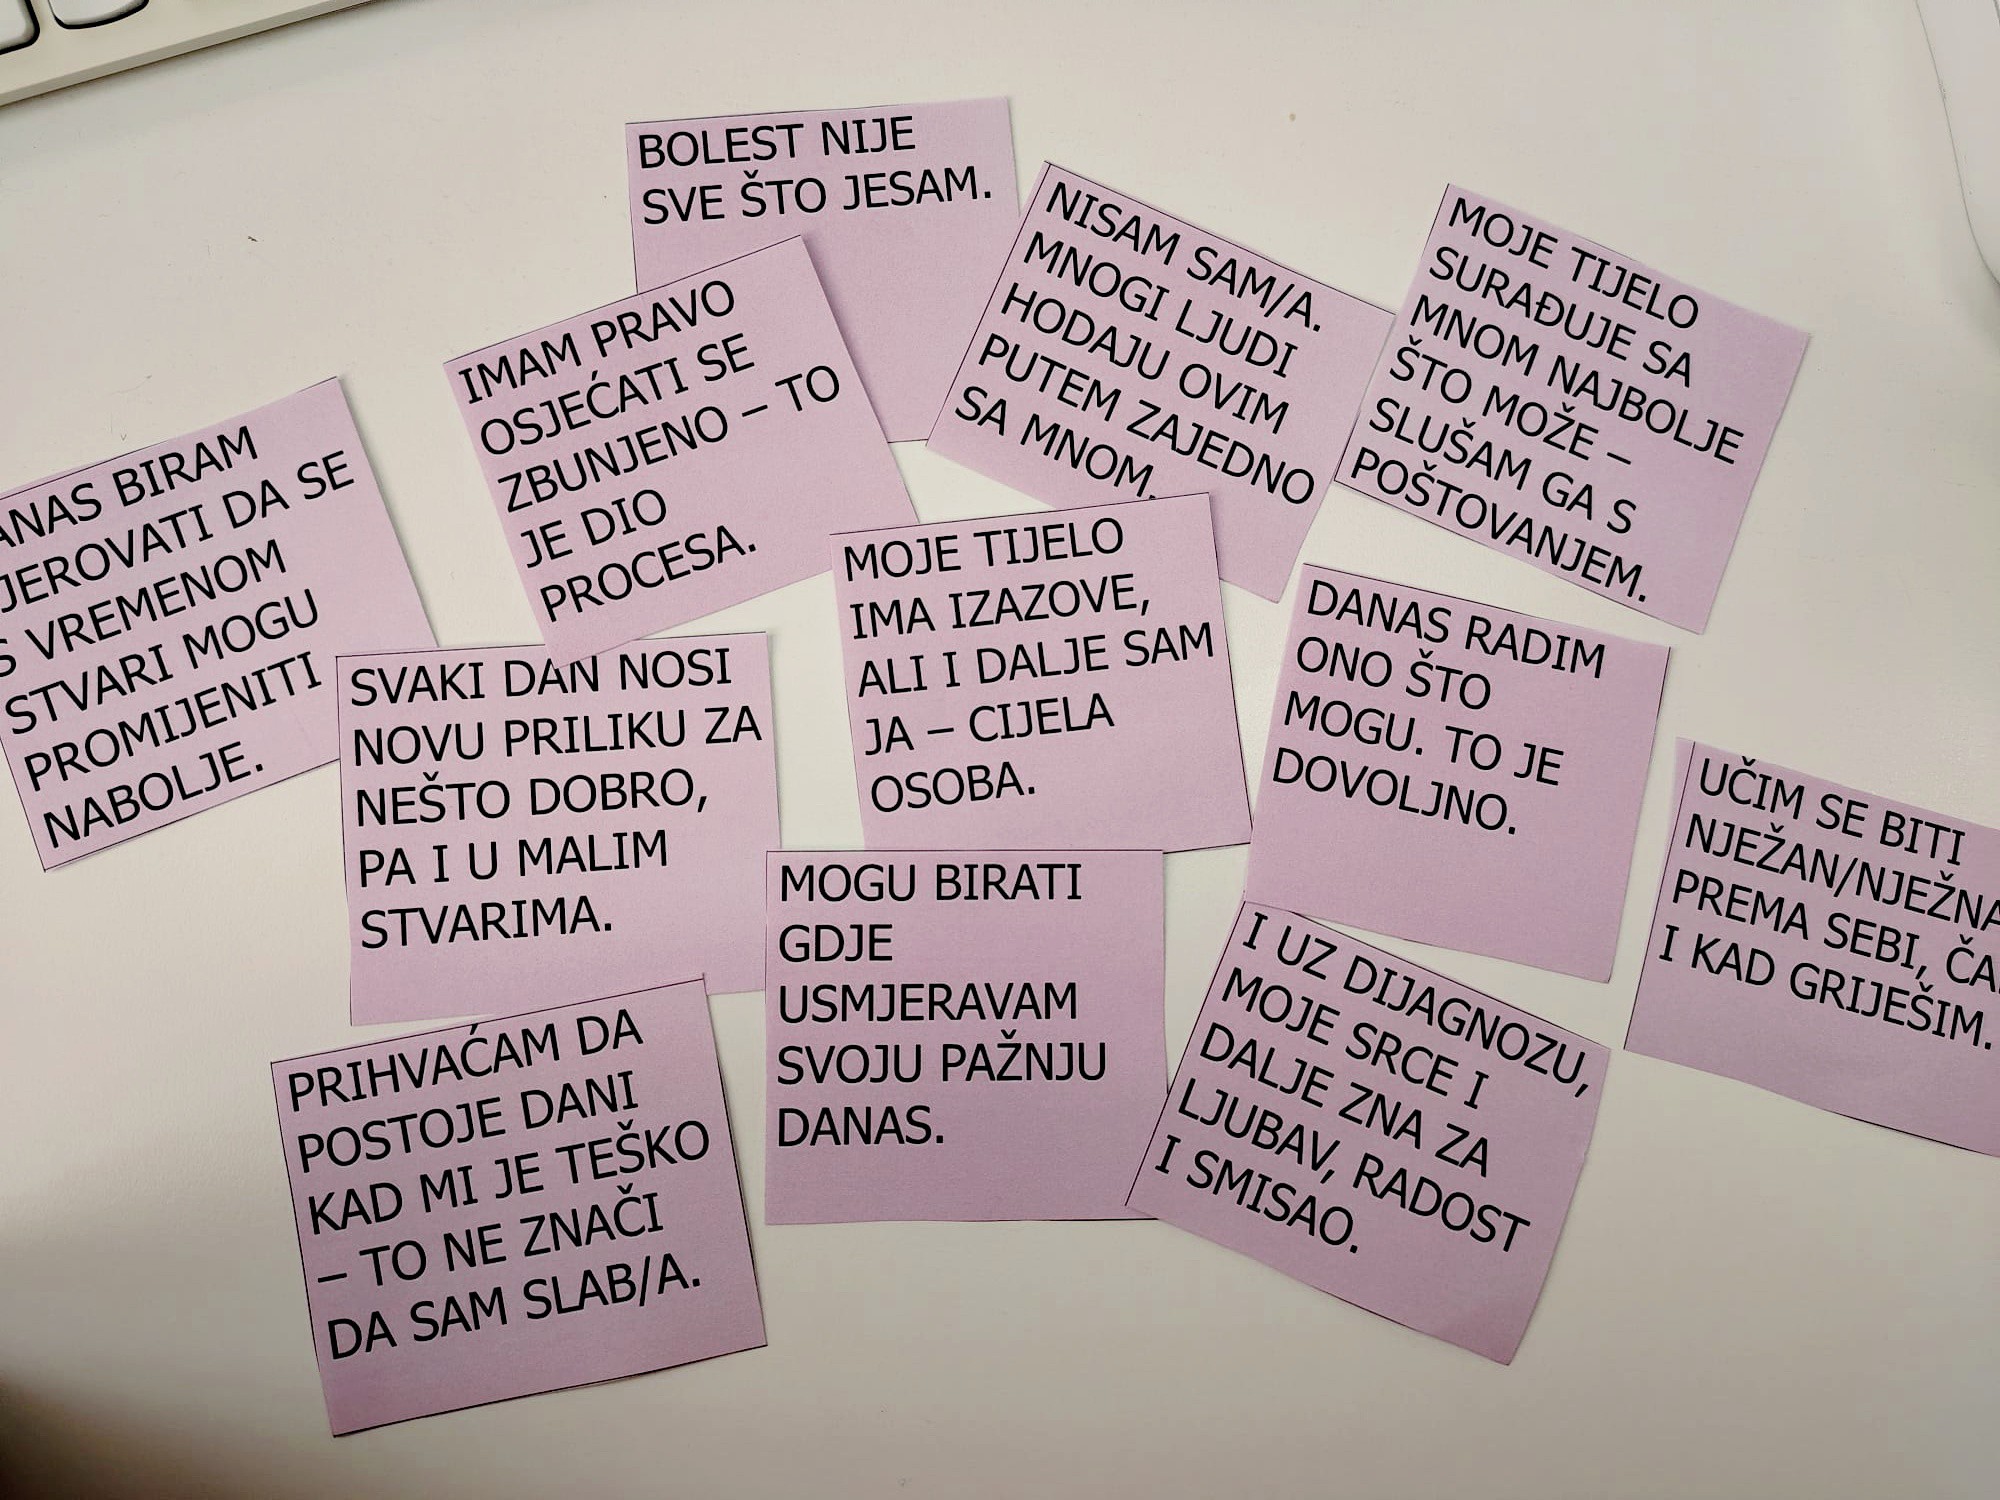 BOLEST NIJE
SVE ŠTO JESAM.
NISAM SAM/A.
MNOGI LJUDI
HODAJU OVIM
PUTEM ZAJEDNO
SA MNOM.
MOJE TIJELO
SURAĐUJE SA
MNOM NAJBOLJE
ŠTO MOŽE –
SLUŠAM GA S
POŠTOVANJEM.
IMAM PRAVO
OSJEĆATI SE
ZBUNJENO – TO
JE DIO
PROCESA.
ANAS BIRAM
JEROVATI DA SE
S VREMENOM
STVARI MOGU
PROMIJENITI
NABOLJE.
MOJE TIJELO
IMA IZAZOVE,
ALI I DALJE SAM
JA – CIJELA
OSOBA.
DANAS RADIM
ONO ŠTO
MOGU. TO JE
DOVOLJNO.
SVAKI DAN NOSI
NOVU PRILIKU ZA
NEŠTO DOBRO,
PA I U MALIM
STVARIMA.
UČIM SE BITI
NJEŽAN/NJEŽNA
PREMA SEBI, ČA
I KAD GRIJEŠIM.
MOGU BIRATI
GDJE
USMJERAVAM
SVOJU PAŽNJU
DANAS.
I UZ DIJAGNOZU,
MOJE SRCE I
DALJE ZNA ZA
LJUBAV, RADOST
I SMISAO.
PRIHVAĆAM DA
POSTOJE DANI
KAD MI JE TEŠKO
– TO NE ZNAČI
DA SAM SLAB/A.